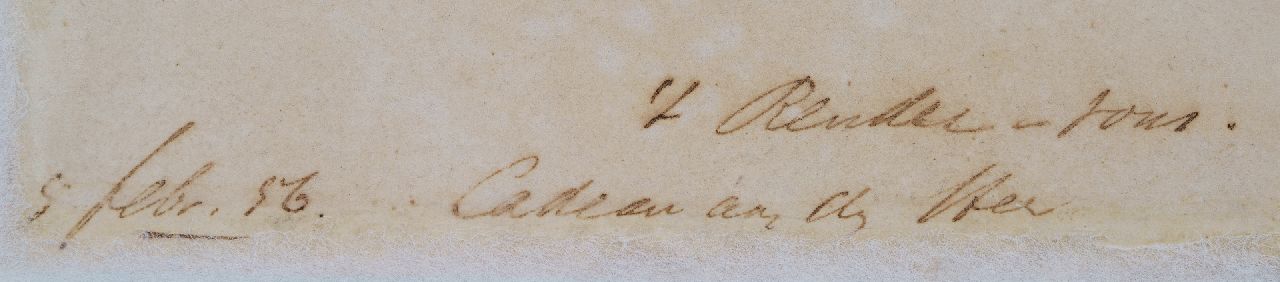 't Rendez-vous.
5 febr. 56. Cadeau aan de Heer